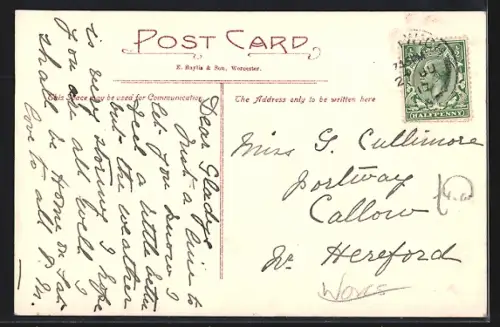 POST CARD
E. Baylis & Son, Worcester.
This Space may be used for Communication
The Address only to be written here
Dear Gladys
Just a line to
let you know I
feel a little better
but the weather
is very stormy I hope
you are all well I
shall be home on Sat
love to all P. M.
Miss G. Cullimore
Portway
Callow
Nr. Hereford
Worcs
HALFPENNY